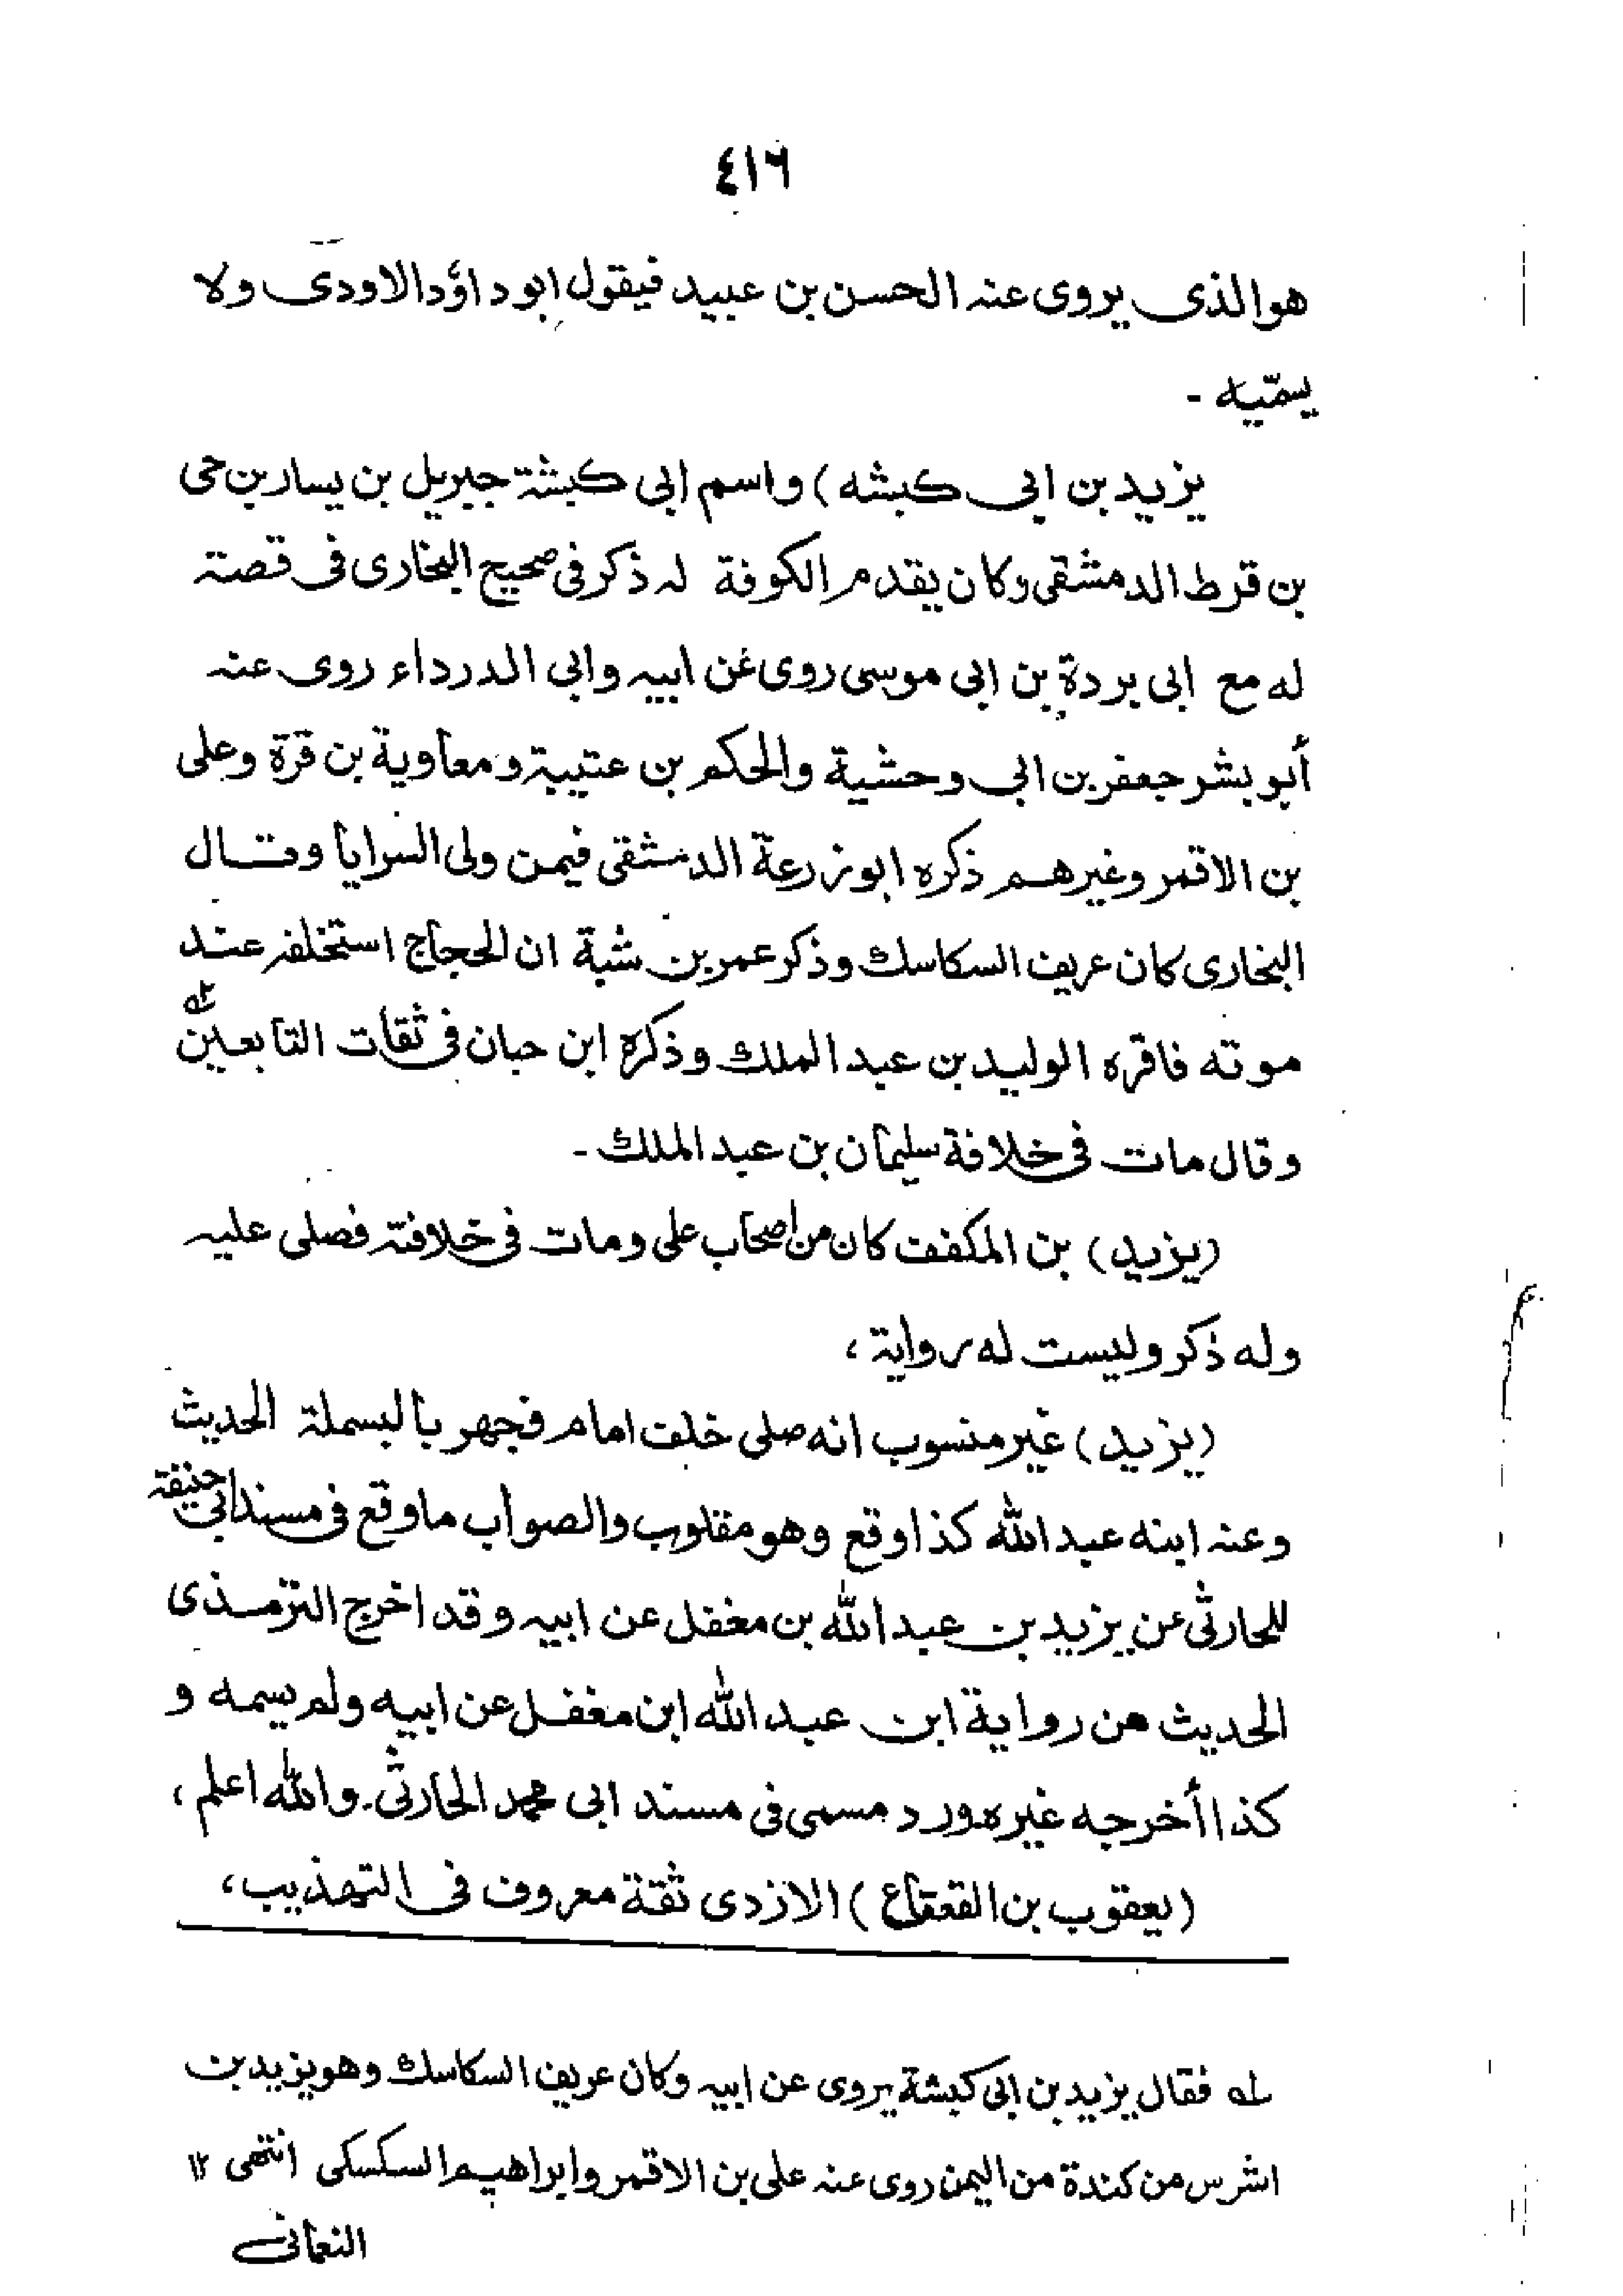 ٤١٦
هو الذى يروى عنه الحسن بن عبيد فيقول ابو داؤد الاودى ولا
يسمّيه -
يزيد بن ابى كبشه) واسم ابى كبشة جبريل بن يسار بن حى
بن قرط الدمشقى وكان يقدم الكوفة له ذكر فى صحيح البخارى فى قصة
له مع ابى بردة بن ابى موسى روى عن ابيه وابى الدرداء روى عنه
أبو بشر جعفر بن ابى وحشية والحكم بن عتيبة ومعاوية بن قرة وعلى
بن الاقمر وغيرهم ذكره ابو زرعة الدمشقى فيمن ولى السرايا وقال
البخارى كان عريف السكاسك وذكر عمر بن شبة ان الحجاج استخلفه عند
موته فاقره الوليد بن عبد الملك وذكره ابن حبان فى ثقات التابعين له
وقال مات فى خلافة سليمان بن عبد الملك -
(يزيد) بن المكفف كان من اصحاب على ومات فى خلافته فصلى عليه
وله ذكر وليست له رواية ،
(يزيد) غير منسوب انه صلى خلف امام فجهر بالبسملة الحديث
وعنه ابنه عبد الله كذا وقع وهو مقلوب والصواب ما وقع فى مسند ابى حنيفة
للحارثى عن يزيد بن عبد الله بن مغفل عن ابيه وقد اخرج الترمذى
الحديث من رواية ابن عبد الله ابن مغفل عن ابيه ولم يسمه و
كذا أخرجه غيره وورد مسمى فى مسند ابى محمد الحارثى. والله اعلم ،
(يعقوب بن القعقاع) الازدى ثقة معروف فى التهذيب ،
له فقال يزيد بن ابى كبشة يروى عن ابيه وكان عريف السكاسك وهو يزيد بن
اشرس من كندة من اليمن روى عنه على بن الاقمر وابراهيم السكسكى انتهى ١٢
النعمانى